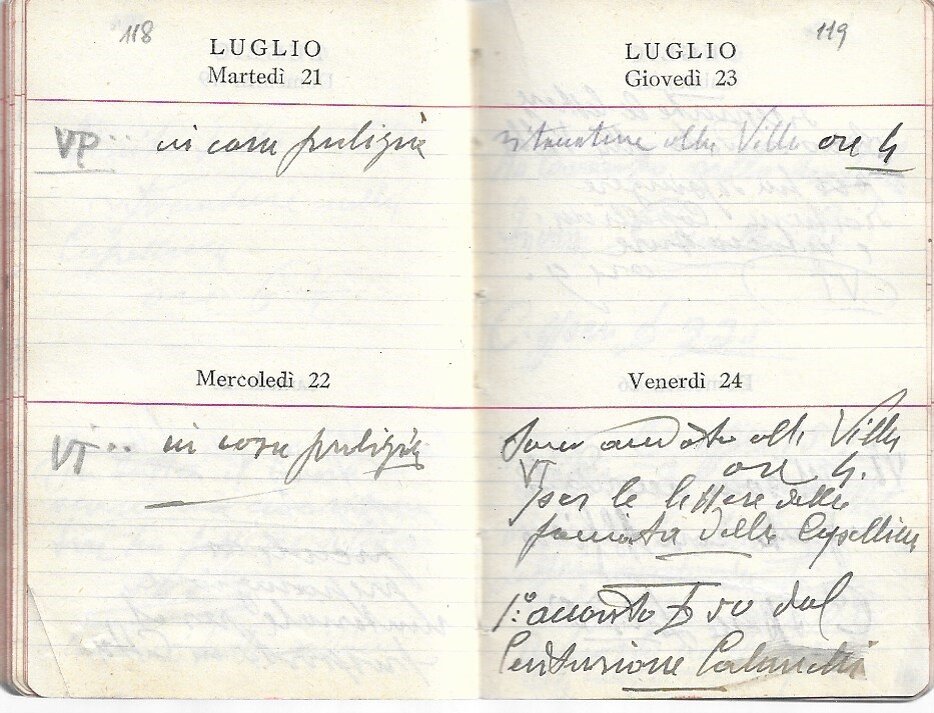 118
LUGLIO
Martedì 21
VP.. in casa pulizia
Mercoledì 22
VT.. in casa pulizia
119
LUGLIO
Giovedì 23
alla Villa ore 4
Venerdì 24
Sono andato alla Villa
VT ore 4.
per le lettere della
facciata della Capellina
1° acconto £ 50 dal
Centurione